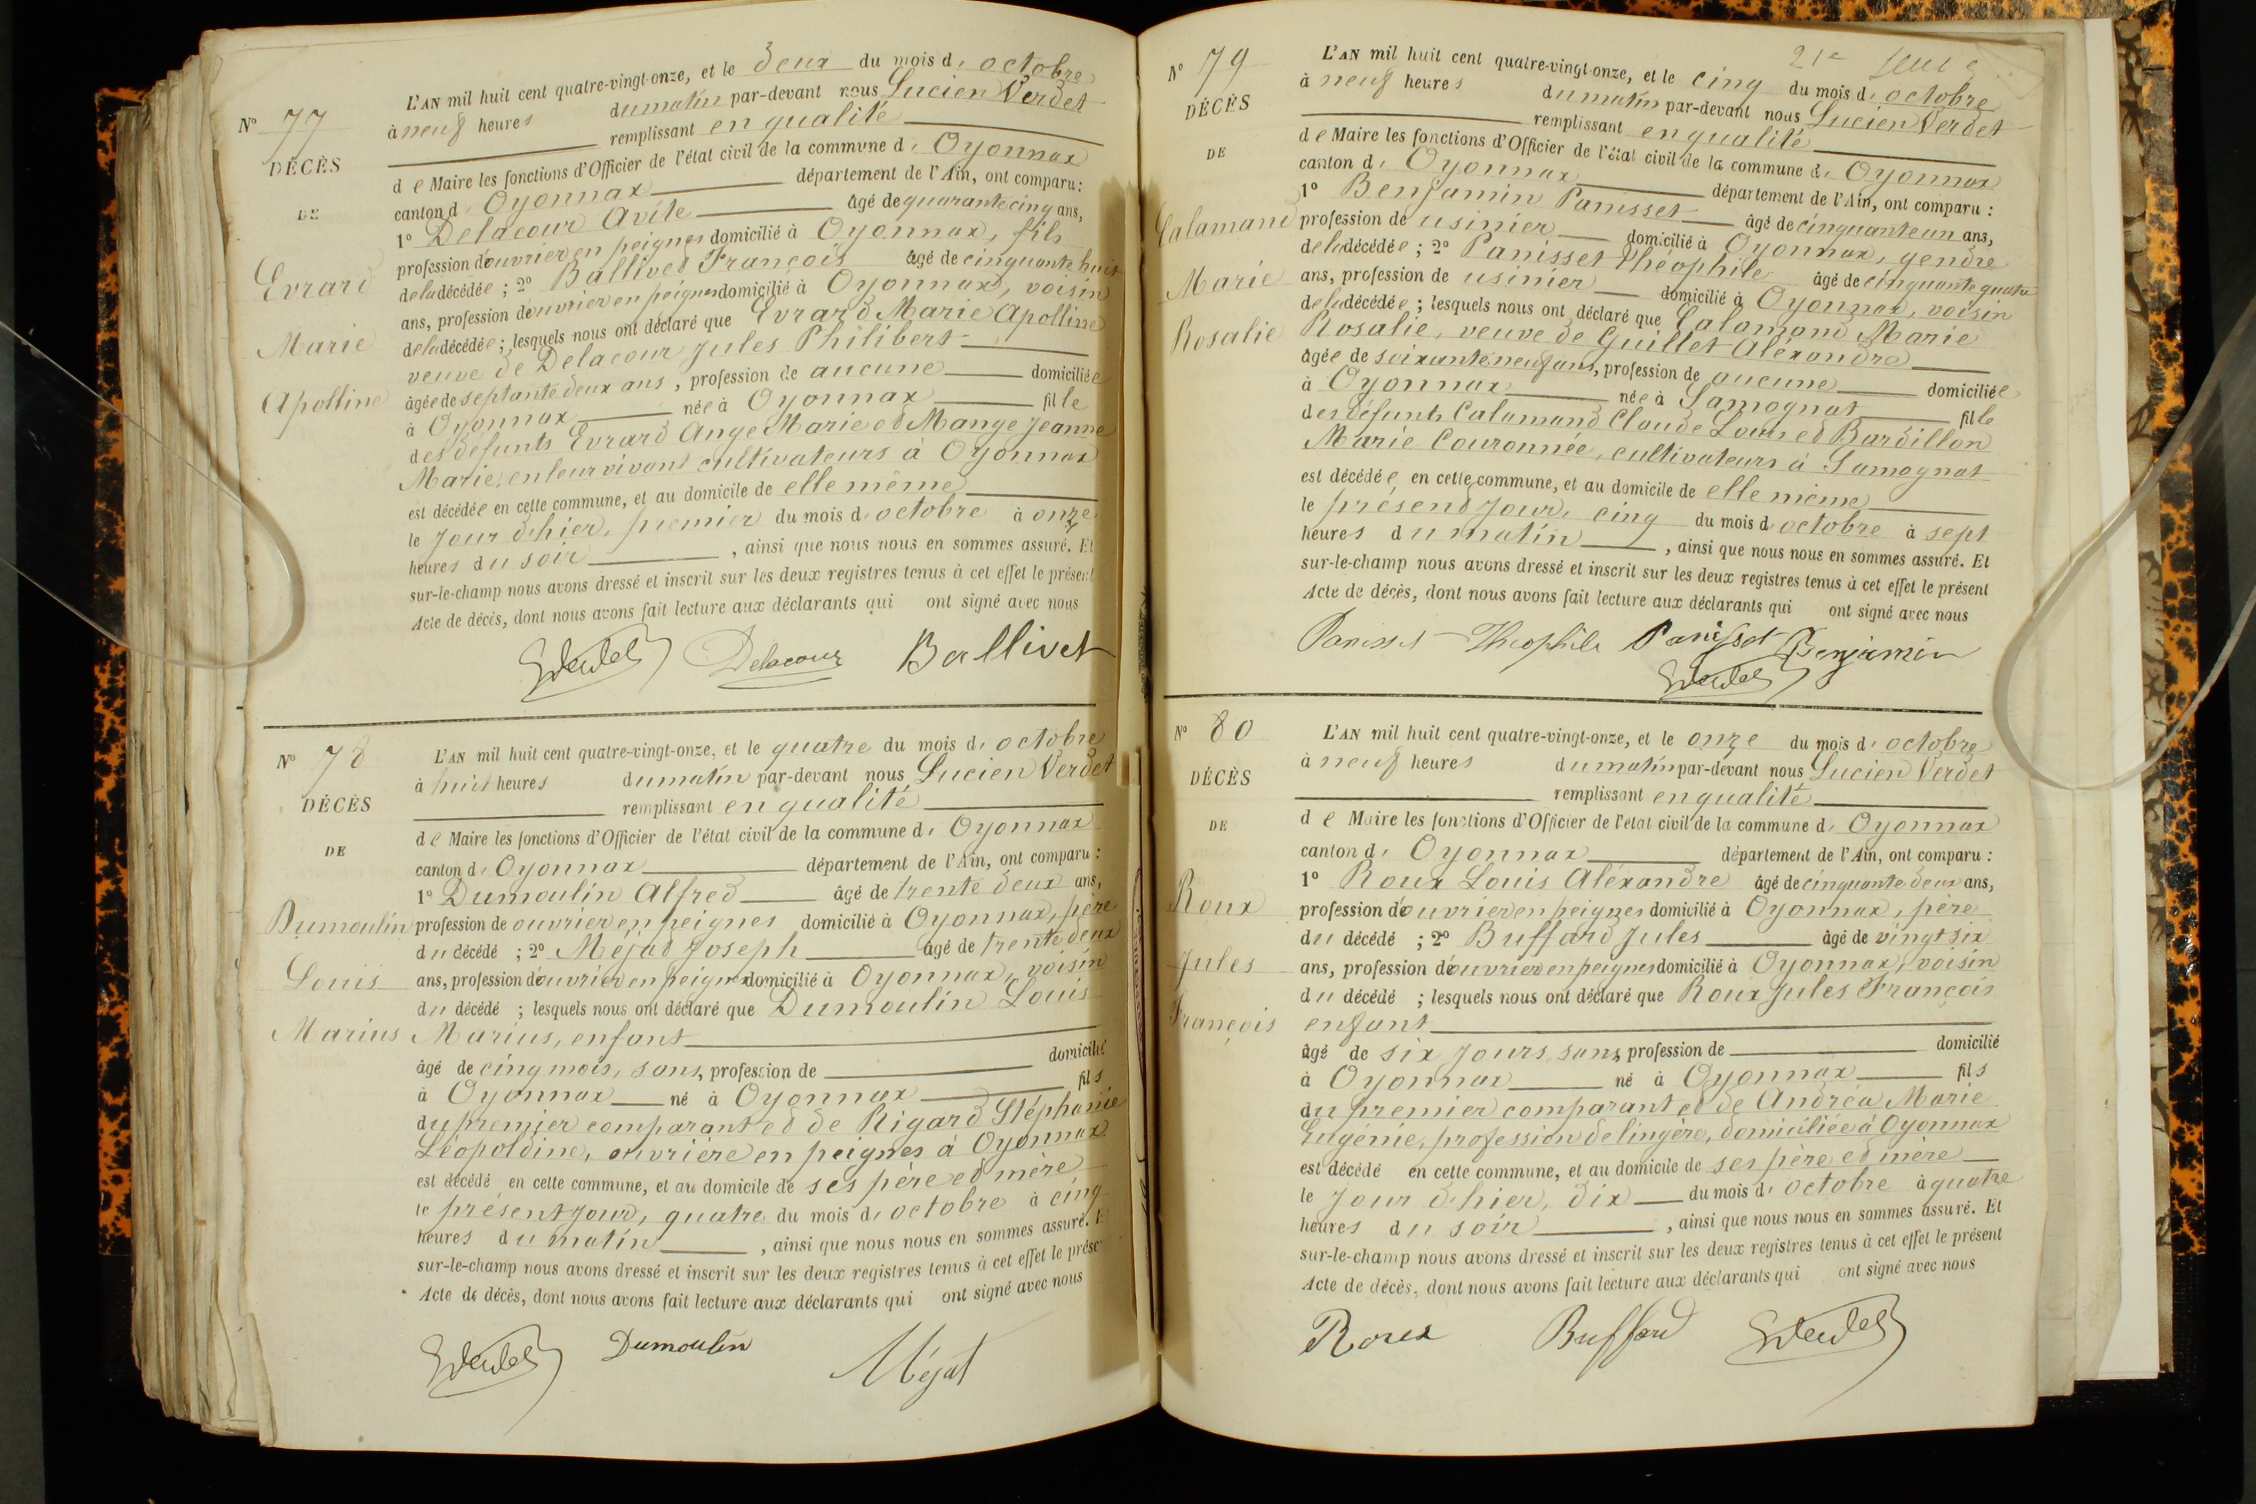 N° 77
DÉCÈS
DE
Evrard
Marie
Apolline
L'AN mil huit cent quatre-vingt-onze, et le deux du mois d'octobre
à neuf heures du matin par-devant nous Lucien Verdet
remplissant en qualité
de Maire les fonctions d'Officier de l'état civil de la commune d'Oyonnax
canton d'Oyonnax département de l'Ain, ont comparu :
1° Delacour Avite âgé de quarante cinq ans,
profession d'ouvrier en peignes domicilié à Oyonnax, fils
de la décédée ; 2° Ballivet François âgé de cinquante huit
ans, profession d'ouvrier en peignes domicilié à Oyonnax, voisin
de la décédée ; lesquels nous ont déclaré que Evrard Marie Apolline
veuve de Delacour Jules Philibert
âgée de septante deux ans, profession de aucune domiciliée
à Oyonnax née à Oyonnax fille
des défunts Evrard Ange Marie et Mange Jeanne
Marie, en leur vivant cultivateurs à Oyonnax
est décédée en cette commune, et au domicile de elle même
le jour d'hier, premier du mois d'octobre à onze
heures du soir, ainsi que nous nous en sommes assuré. Et
sur-le-champ nous avons dressé et inscrit sur les deux registres tenus à cet effet le présent
Acte de décès, dont nous avons fait lecture aux déclarants qui ont signé avec nous
Delacour Ballivet
N° 78
DÉCÈS
DE
Dumoulin
Louis
Marius
L'AN mil huit cent quatre-vingt-onze, et le quatre du mois d'octobre
à huit heures du matin par-devant nous Lucien Verdet
remplissant en qualité
de Maire les fonctions d'Officier de l'état civil de la commune d'Oyonnax
canton d'Oyonnax département de l'Ain, ont comparu :
1° Dumoulin Alfred âgé de trente deux ans,
profession de ouvrier en peignes domicilié à Oyonnax, père
du décédé ; 2° Méjat Joseph âgé de trente deux
ans, profession d'ouvrier en peignes domicilié à Oyonnax, voisin
du décédé ; lesquels nous ont déclaré que Dumoulin Louis
Marius, enfant
âgé de cinq mois, sans, profession de domicilié
à Oyonnax né à Oyonnax fils
du premier comparant et de Rigard Stéphanie
Léopoldine, ouvrière en peignes à Oyonnax
est décédé en cette commune, et au domicile de ses père et mère
le présent jour, quatre du mois d'octobre à cinq
heures du matin, ainsi que nous nous en sommes assuré. E
sur-le-champ nous avons dressé et inscrit sur les deux registres tenus à cet effet le prése
Acte de décès, dont nous avons fait lecture aux déclarants qui ont signé avec nous
Dumoulin Méjat
21e
N° 79
DÉCÈS
DE
Calamand
Marie
Rosalie
L'AN mil huit cent quatre-vingt-onze, et le cinq du mois d'octobre
à neuf heures du matin par-devant nous Lucien Verdet
remplissant en qualité
de Maire les fonctions d'Officier de l'état civil de la commune d'Oyonnax
canton d'Oyonnax département de l'Ain, ont comparu :
1° Benjamin Panisset âgé de cinquante un ans,
profession de usinier domicilié à Oyonnax, gendre
de la décédée ; 2° Panisset Théophile âgé de cinquante quatre
ans, profession de usinier domicilié à Oyonnax, voisin
de la décédée ; lesquels nous ont déclaré que Calamand Marie
Rosalie, veuve de Guillet Aléxandre
âgée de soixante neuf ans, profession de aucune domiciliée
à Oyonnax née à Samognat fille
des défunts Calamand Claude Louis et Bardillon
Marie Couronnée, cultivateurs à Samognat
est décédée en cette commune, et au domicile de elle même
le présent jour, cinq du mois d'octobre à sept
heures du matin, ainsi que nous nous en sommes assuré. Et
sur-le-champ nous avons dressé et inscrit sur les deux registres tenus à cet effet le présent
Acte de décès, dont nous avons fait lecture aux déclarants qui ont signé avec nous
Panisset Théophile Panisset Benjamin
N° 80
DÉCÈS
DE
Roux
Jules
François
L'AN mil huit cent quatre-vingt-onze, et le onze du mois d'octobre
à neuf heures du matin par-devant nous Lucien Verdet
remplissant en qualité
de Maire les fonctions d'Officier de l'état civil de la commune d'Oyonnax
canton d'Oyonnax département de l'Ain, ont comparu :
1° Roux Louis Aléxandre âgé de cinquante deux ans,
profession d'ouvrier en peignes domicilié à Oyonnax, père
du décédé ; 2° Buffard Jules âgé de vingt six
ans, profession d'ouvrier en peignes domicilié à Oyonnax, voisin
du décédé ; lesquels nous ont déclaré que Roux Jules François
enfant
âgé de six jours, sans, profession de domicilié
à Oyonnax né à Oyonnax fils
du premier comparant et de Andréa Marie
Eugénie, profession de lingère, domiciliée à Oyonnax
est décédé en cette commune, et au domicile de ses père et mère
le jour d'hier, dix du mois d'octobre à quatre
heures du soir, ainsi que nous nous en sommes assuré. Et
sur-le-champ nous avons dressé et inscrit sur les deux registres tenus à cet effet le présent
Acte de décès, dont nous avons fait lecture aux déclarants qui ont signé avec nous
Roux Buffard